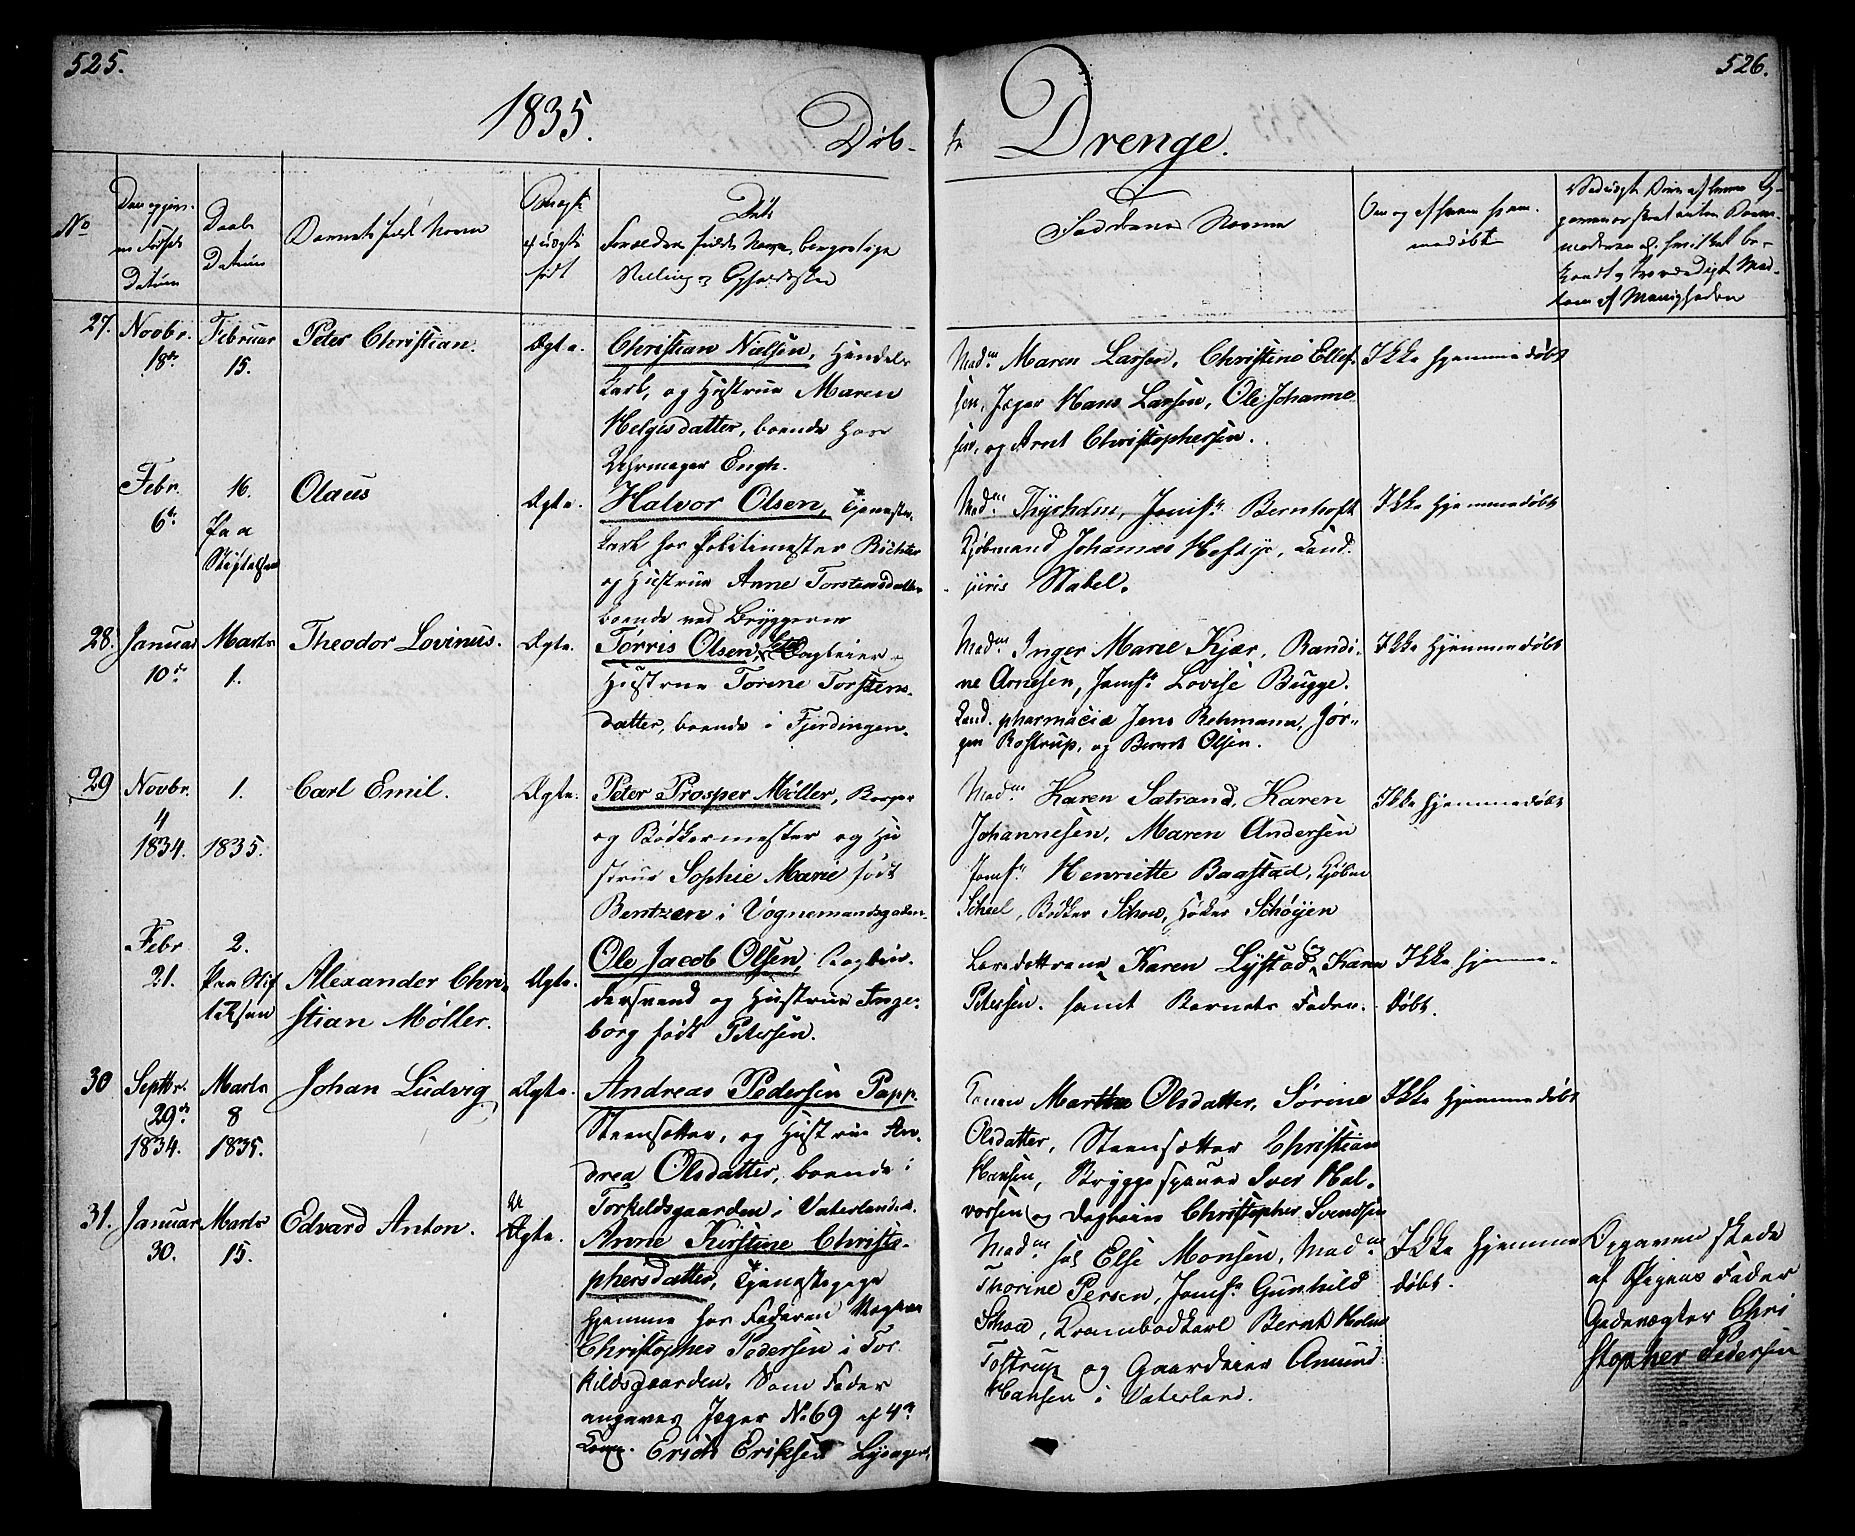 525.
526.
1835.
Døb-
te
Drenge.
No
Daabs
Datum
Barnets fulde Navn
Faddernes Navne
Om og af hvem hjem-
medøbt
27.
Novbr.
18de
Februar
15.
Peter Christian.
Ægte.
Christian Nielsen, Handels
karl, og Hustrue Maren
Helgesdatter, boende hos
Uhrmager Engh.
Madm Maren Larsen, Christine Ellef-
sen, Jæger Hans Larsen, Ole Johanne-
sen, og Arnt Christophersen.
Ikke hjemmedøbt
Febr.
6te
16.
Paa
Stiftelsen
Olaus
Ægte.
Halvor Olsen, Tjeneste-
karl hos Politimester Richter
og Hustrue Anne Torstensdatter
boende ved Bryggerne
Madm Thyrholm, Jomfr Bernhoft
Kjøbmand Johannes Heftye, Kand.
juris Stabel.
Ikke hjemmedøbt
28.
Januar
10de
Marts
1.
Theodor Lovinus.
Ægte.
Tørris Olsen, Dagleier og
Hustrue Torine Torstens-
datter, boende i Fjerdingen.
Madm Inger Marie Kjær, Randi-
ne Arnesen, Jomfr Lovise Bugge.
Kand. pharmaciæ Jens Rehmann, Jør-
gen Rostrup, og Bernt Olsen.
Ikke hjemmedøbt
29
Novbr.
4
1834.
1.
1835.
Carl Emil.
Ægte.
Peter Prosper Møller, Borger
og Bødkermester og Hu
strue Sophie Marie født
Bentzen i Vognemandsgaden.
Madm Karen Sætrand, Karen
Johannesen, Maren Andersen
Jomfr Henriette Baastad, Kjøbm
Scheel, Bødker Schou, Høker Schøyen
Ikke hjemmedøbt
Febr
21.
2.
Paa Stif
telsen
Alexander Chri-
stian Møller.
Ægte.
Ole Jacob Olsen, Bogbin-
dersvend og Hustrue Inge-
borg født Petersen.
Læredøttrene Karen Lystad, Karen
Petersen. samt Barnets Fader.
Ikke hjemme-
døbt.
30
Septbr.
29de
1834.
Marts
8
1835.
Johan Ludvig,
Ægte.
Andreas Pedersen Papp.
Steensætter, og Hustrue An-
drea Olsdatter, boende i
Torkeldsgaarden i Vaterland.
Konen Marthe Olsdatter, Sørine
Olsdatter, Steensætter Christian
Hansen, Bryggesjouer Iver Hal-
vorsen og Dagleier Christopher Svendsen
Ikke hjemmedøbt
31.
Januar
30.
Marts
15.
Edvard Anton.
U
Ægte.
Anne Kirstine Christo-
phersdatter, Tjenestepige
hjemme hos Faderen Vægter
Christopher Pedersen i Tor
kildsgaarden. Som Fader
angaves Jæger No 69 af 4de
Komp. Erich Eriksen
Madm Else Monsen, Madm
Thorine Persen, Jomfr Gunhild
Schou, Krambodkarl Bernt Holm
Tostrup og Gaardeier Amund
Hansen i Vaterland.
Ikke hjemme
døbt.
Opgaven skede
af Pigens Fader
Gadevægter Chri
stopher Pedersen